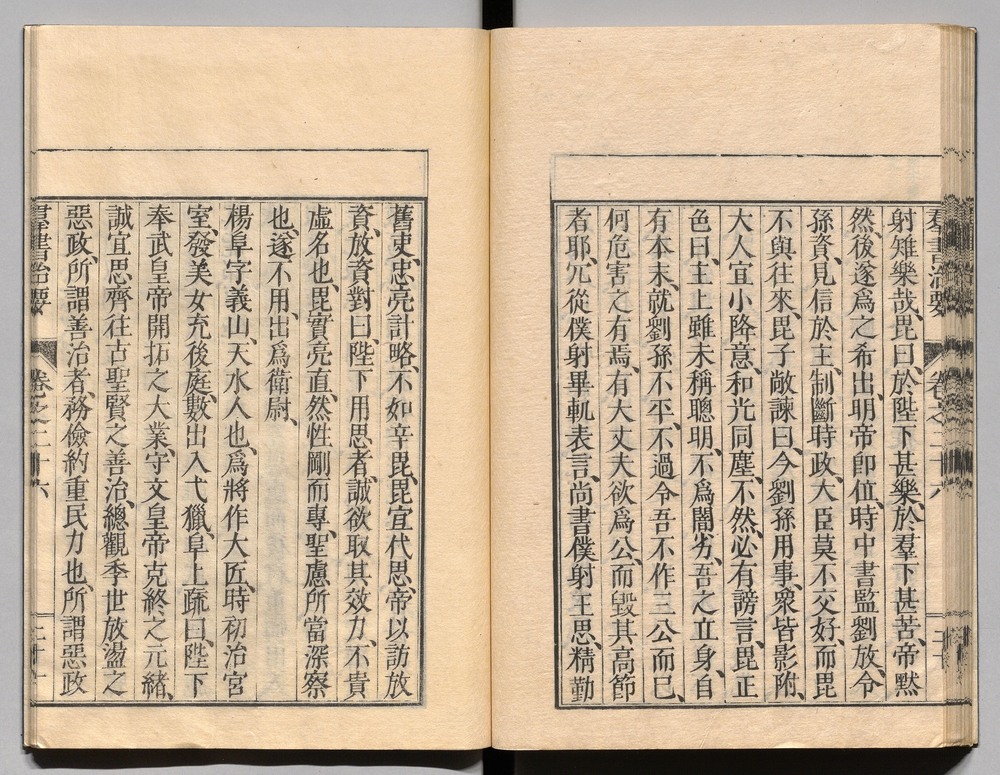 羣書治要 卷之二十六
射雉樂哉、毘曰、於陛下甚樂、於羣下甚苦、帝默
然、後遂爲之希出、明帝卽位、時中書監劉放、令
孫資、見信於主、制斷時政、大臣莫不交好、而毘
不與往來、毘子敞諫曰、今劉孫用事、衆皆影附、
大人宜小降意、和光同塵、不然必有謗言、毘正
色曰、主上雖未稱聰明、不爲闇劣、吾之立身、自
有本末、就劉孫不平、不過令吾不作三公而已、
何危害之有焉、有大丈夫欲爲公、而毀其高節
者耶、冗從僕射畢軌表言、尚書僕射王思、精勤
舊吏、忠亮計略、不如辛毘、毘宜代思、帝以訪放
資、放資對曰、陛下用思者、誠欲取其效力、不貴
虛名也、毘實亮直、然性剛而專、聖慮所當深察
也、遂不用、出爲衛尉、
楊阜字義山、天水人也、爲將作大匠、時初治宮
室、發美女充後庭、數出入弋獵、阜上疏曰、陛下
奉武皇帝開拓之大業、守文皇帝克終之元緒、
誠宜思齊往古聖賢之善治、總觀季世放盪之
惡政、所謂善治者、務儉約重民力也、所謂惡政
羣書治要 卷之二十六